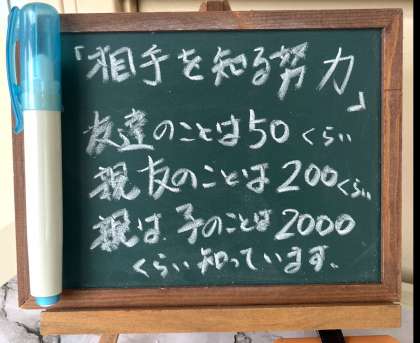 「相手を知る努力」
友達のことは50くらい
親友のことは200くらい
親は子のことは2000
くらい知っています。